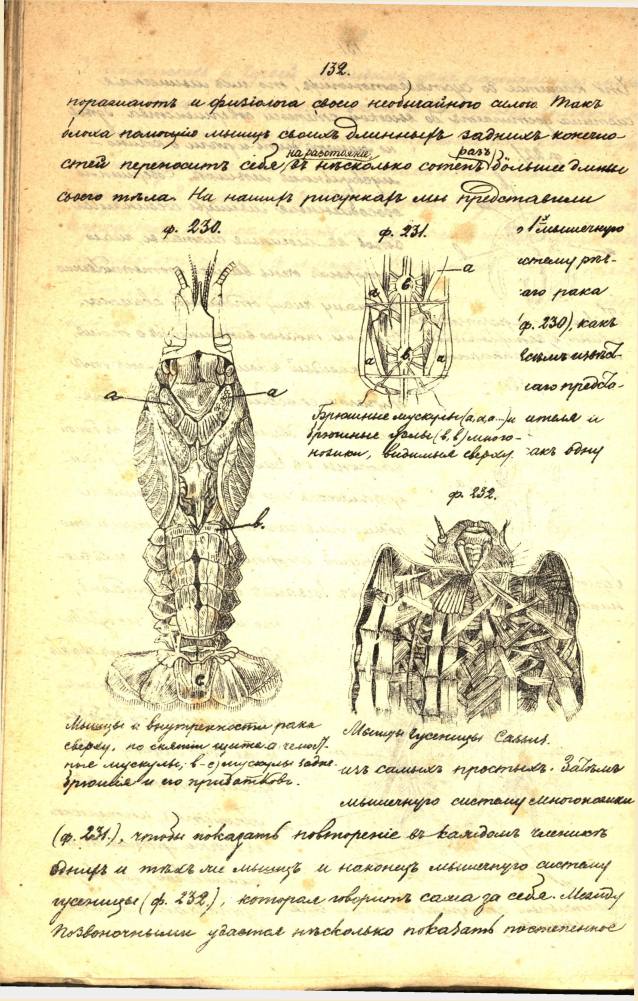 132.
поражаютъ и физiолога своею необычайною силою. Такъ
блоха помощiю мышцъ своихъ длинныхъ заднихъ конечно-
стей переноситъ себя на разстоянiе, въ нѣсколько сотенъ разъ большее длины
своего тѣла. На нашихъ рисункахъ мы представили
ф. 230.
ф. 231.
мышечную
систему рѣч-
наго рака
(ф. 230), какъ
a
a
a
a
в
в
a
a
в.
с
Брюшные мускулы (а, а, а...) и
брюшные узлы (в, в) много-
ножки, видимые сверху.
ителя и
акъ одну
ф. 232.
Мышцы и внутренности рака
сверху, по снятiи щита а челюст-
ные мускулы; в-с) мускулы задне-
брюшiя и его придатковъ.
Мышцы гусеницы Cassus.
изъ самыхъ простыхъ. Затѣмъ
мышечную систему многоножки
(ф. 231.), чтобы показать повторенiе въ каждомъ членикѣ
однихъ и тѣхъ же мышцъ и наконецъ мышечную систему
гусеницы (ф. 232.), которая говоритъ сама за себя. Между
Позвоночными удастся нѣсколько показать постепенное